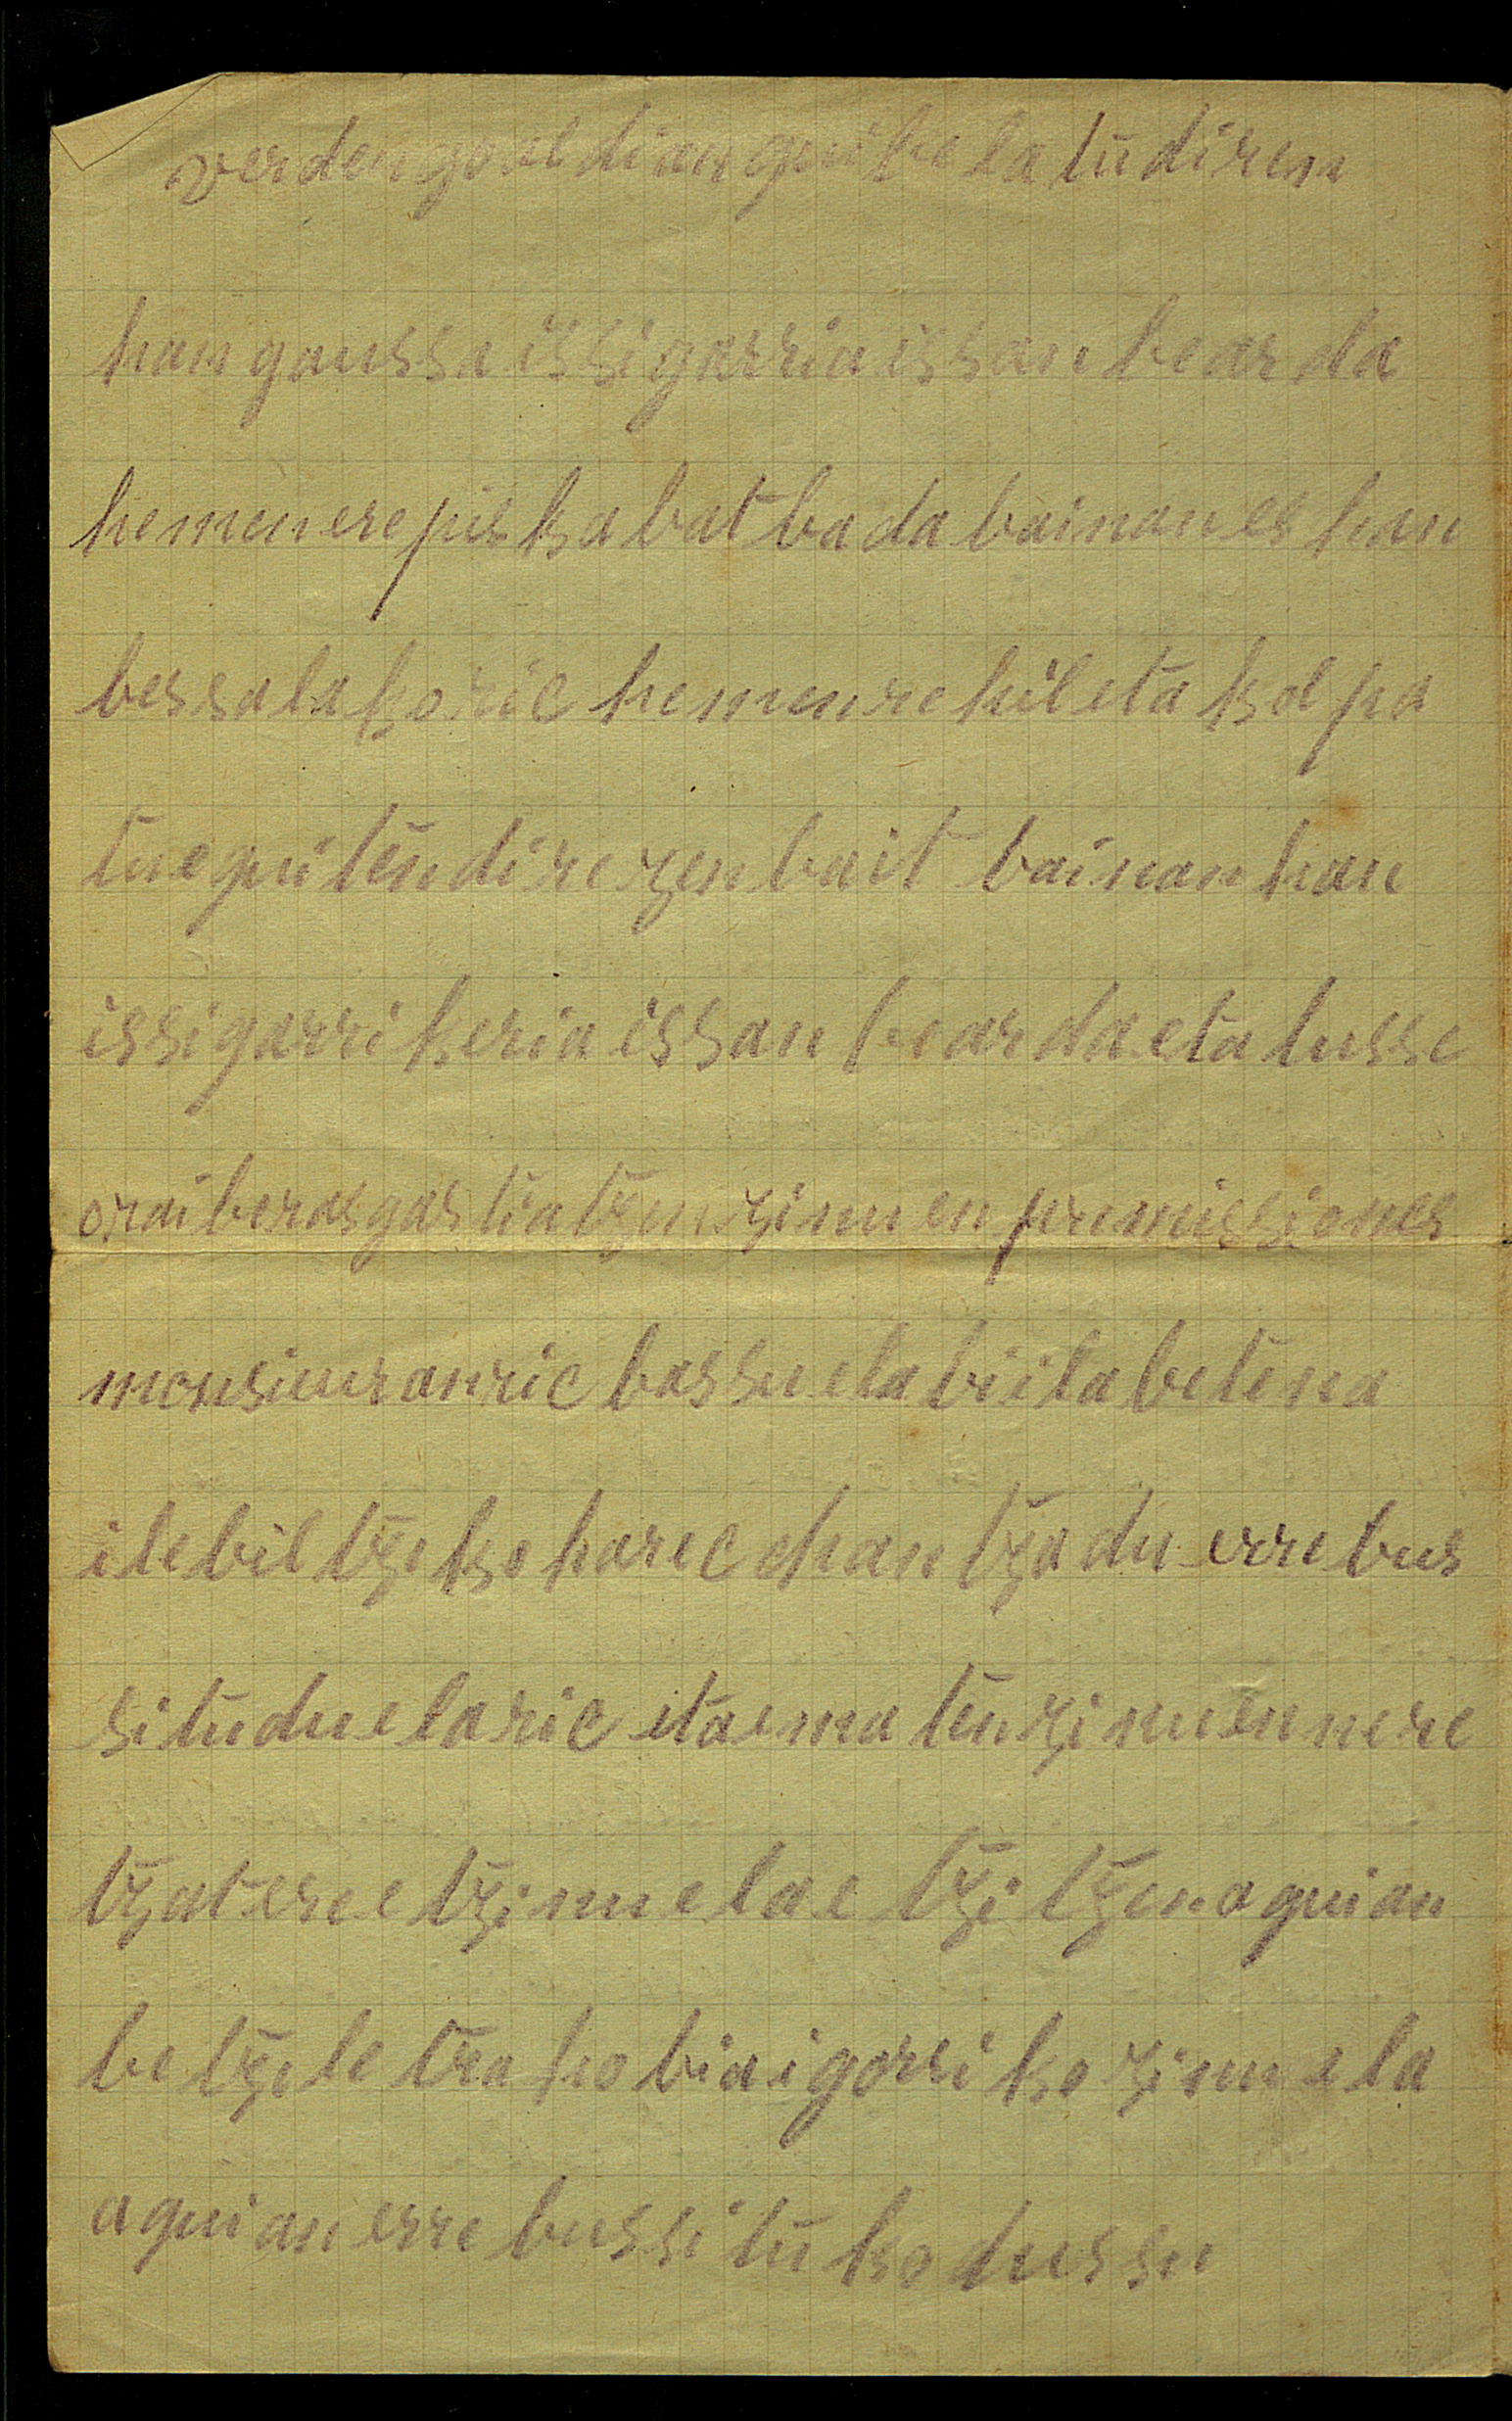 verden gaal dian qui ke la tu diren
han gaussa issigarria issan bear da
hemen ere piska bat bada bainan es han
bessalakoric hemen re hil eta kolpa
tu e quiten dire zenbait bainan han
issigarri keria issan bear da eta lusse
orai beras gastiatzen zinuen permissiones
monsieur anric bassuela bi ilabetena
ilebiltzeko harec chantza du errebus
situduelaric eta ematen zinuen nere
tzat ere etzinuela etzitzen aquian
betze letra ho bia igorriko zinuela
aquian errebussituko dussu